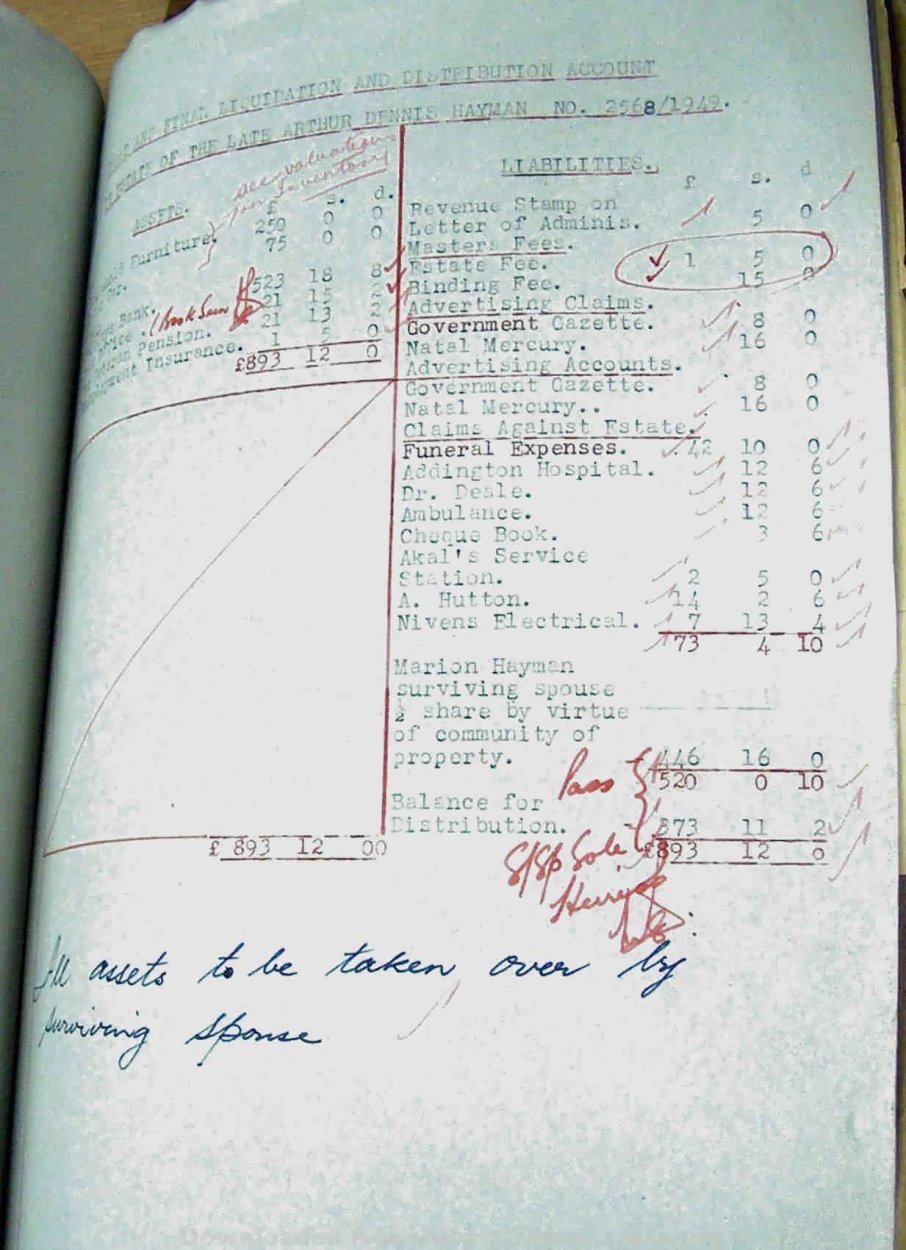 AND FINAL LIQUIDATION AND DISTRIBUTION ACCOUNT
ESTATE OF THE LATE ARTHUR DENNIS HAYMAN NO. 2568/1949.
see valuation
on Inventory
ASSETS.
£ s. d.
Furniture. 250 0 0
75 0 0
Bank. 523 18 8
(Book Seen) 21 15 2
Pension. 21 13 2
Insurance. 1 5 0
£893 12 0
£ 893 12 00
LIABILITIES.
£ s. d
Revenue Stamp on
Letter of Adminis. 5 0
Masters Fees.
Estate Fee. 1 5 0
Binding Fee. 15 0
Advertising Claims.
Government Gazette. 8 0
Natal Mercury. 16 0
Advertising Accounts.
Government Gazette. 8 0
Natal Mercury.. 16 0
Claims Against Estate.
Funeral Expenses. 42 10 0
Addington Hospital. 12 6
Dr. Deale. 12 6
Ambulance. 12 6
Cheque Book. 3 6
Akal's Service
Station. 2 5 0
A. Hutton. 14 2 6
Nivens Electrical. 7 13 4
73 4 10
Marion Hayman
surviving spouse
½ share by virtue
of community of
property. 446 16 0
Pass 520 0 10
Balance for
Distribution. 373 11 2
£893 12 0
S/Sp Sole
All assets to be taken over by
surviving spouse